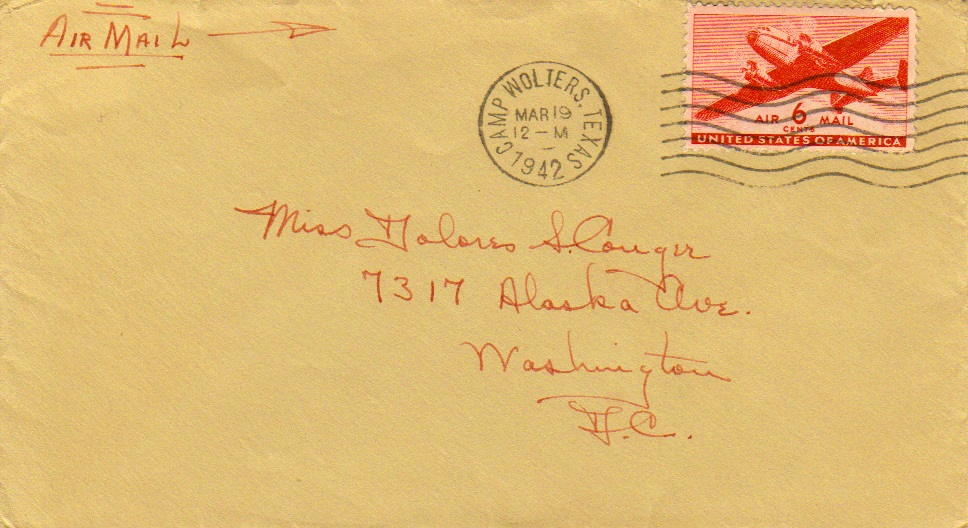 AIR MAIL
CAMP WOLTERS, TEXAS
MAR 19
12 – M
1942
AIR 6 MAIL
CENTS
UNITED STATES OF AMERICA
Miss Dolores S. Conger
7317 Alaska Ave.
Washington
D.C.